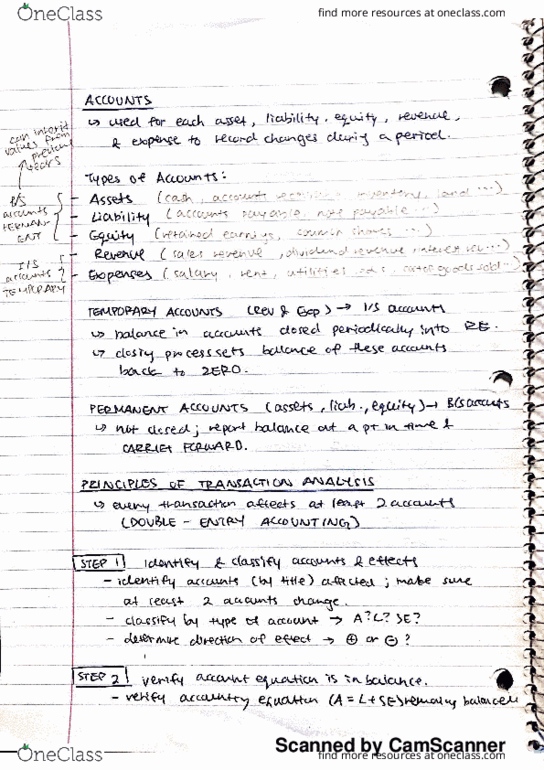 OneClass
find more resources at oneclass.com
ACCOUNTS
↳ used for each asset, liability, equity, revenue,
& expense to record changes during a period.
can inherit
values from
previous
years
Types of Accounts:
B/S
accounts
PERMAN-
ENT
- Assets (cash, accounts inventory, land ...)
- Liability (accounts payable, note payable ...)
- Equity (retained earnings, common shares ...)
I/S
accounts
TEMPORARY
- Revenue (sales revenue, dividend revenue, interest rev...)
- Expenses (salary, rent, utilities, cost of goods sold...)
TEMPORARY ACCOUNTS (Rev & Exp) → I/S accounts
↳ balance in accounts closed periodically into RE.
↳ closing process sets balance of these accounts
back to ZERO.
PERMANENT ACCOUNTS (assets, liab., equity) → B/S accounts
↳ not closed; report balance at a pt in time &
CARRIED FORWARD.
PRINCIPLES OF TRANSACTION ANALYSIS
↳ every transaction affects at least 2 accounts
(DOUBLE-ENTRY ACCOUNTING)
STEP 1 identify & classify accounts & effects
- identify accounts (by title) affected; make sure
at least 2 accounts change.
- classify by type of account → A? L? SE?
- determine direction of effect → ⊕ or ⊖?
STEP 2 verify account equation is in balance.
- verify accounting equation (A = L + SE) remains balanced
Scanned by CamScanner
OneClass
find more resources at oneclass.com